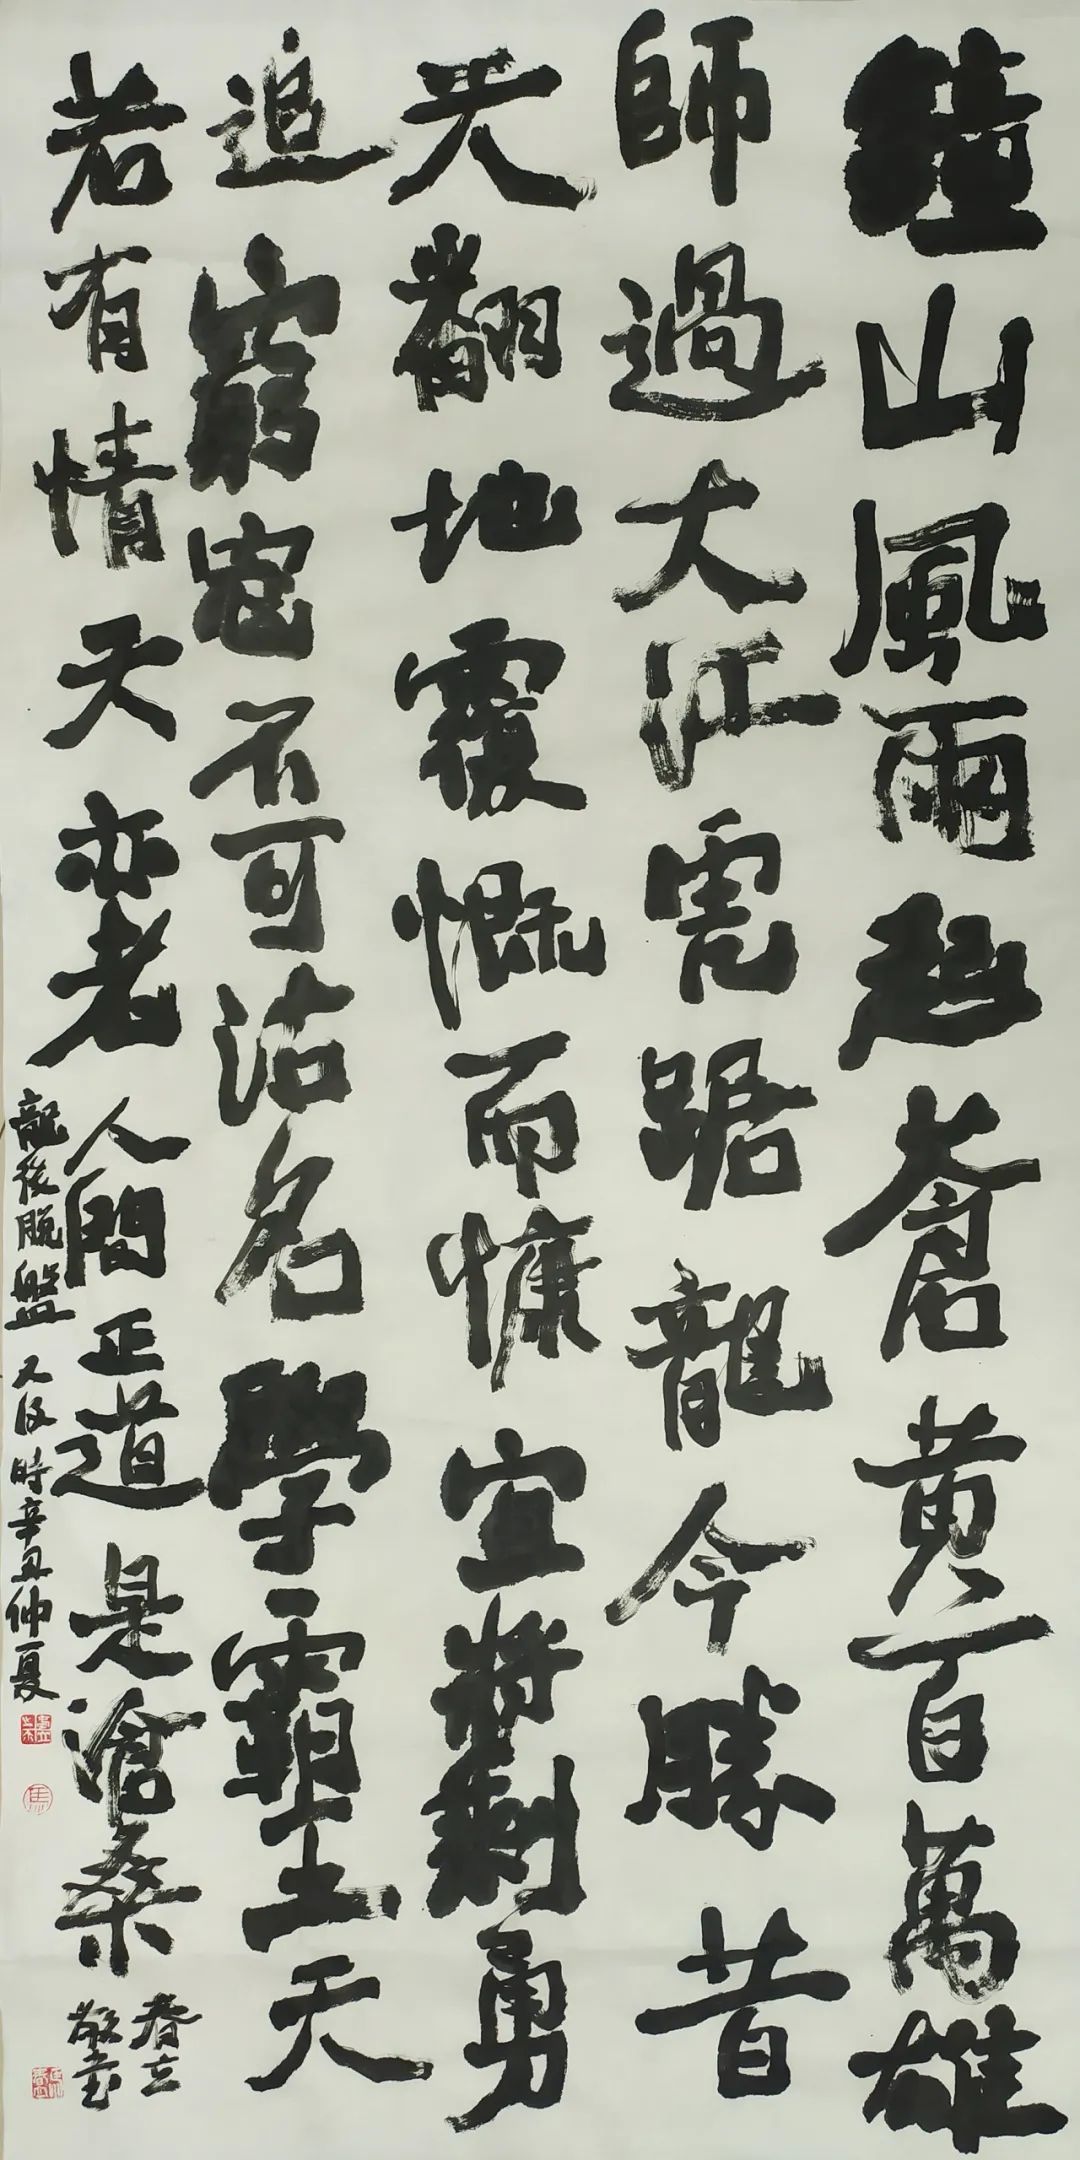 鐘山風雨起蒼黃百萬雄
師過大江虎踞龍今勝昔
天翻地覆慨而慷宜將剩勇
追窮寇不可沽名學霸王天
若有情天亦老人間正道是滄桑
春立
敬書
龍後脫盤 又及時辛丑仲夏